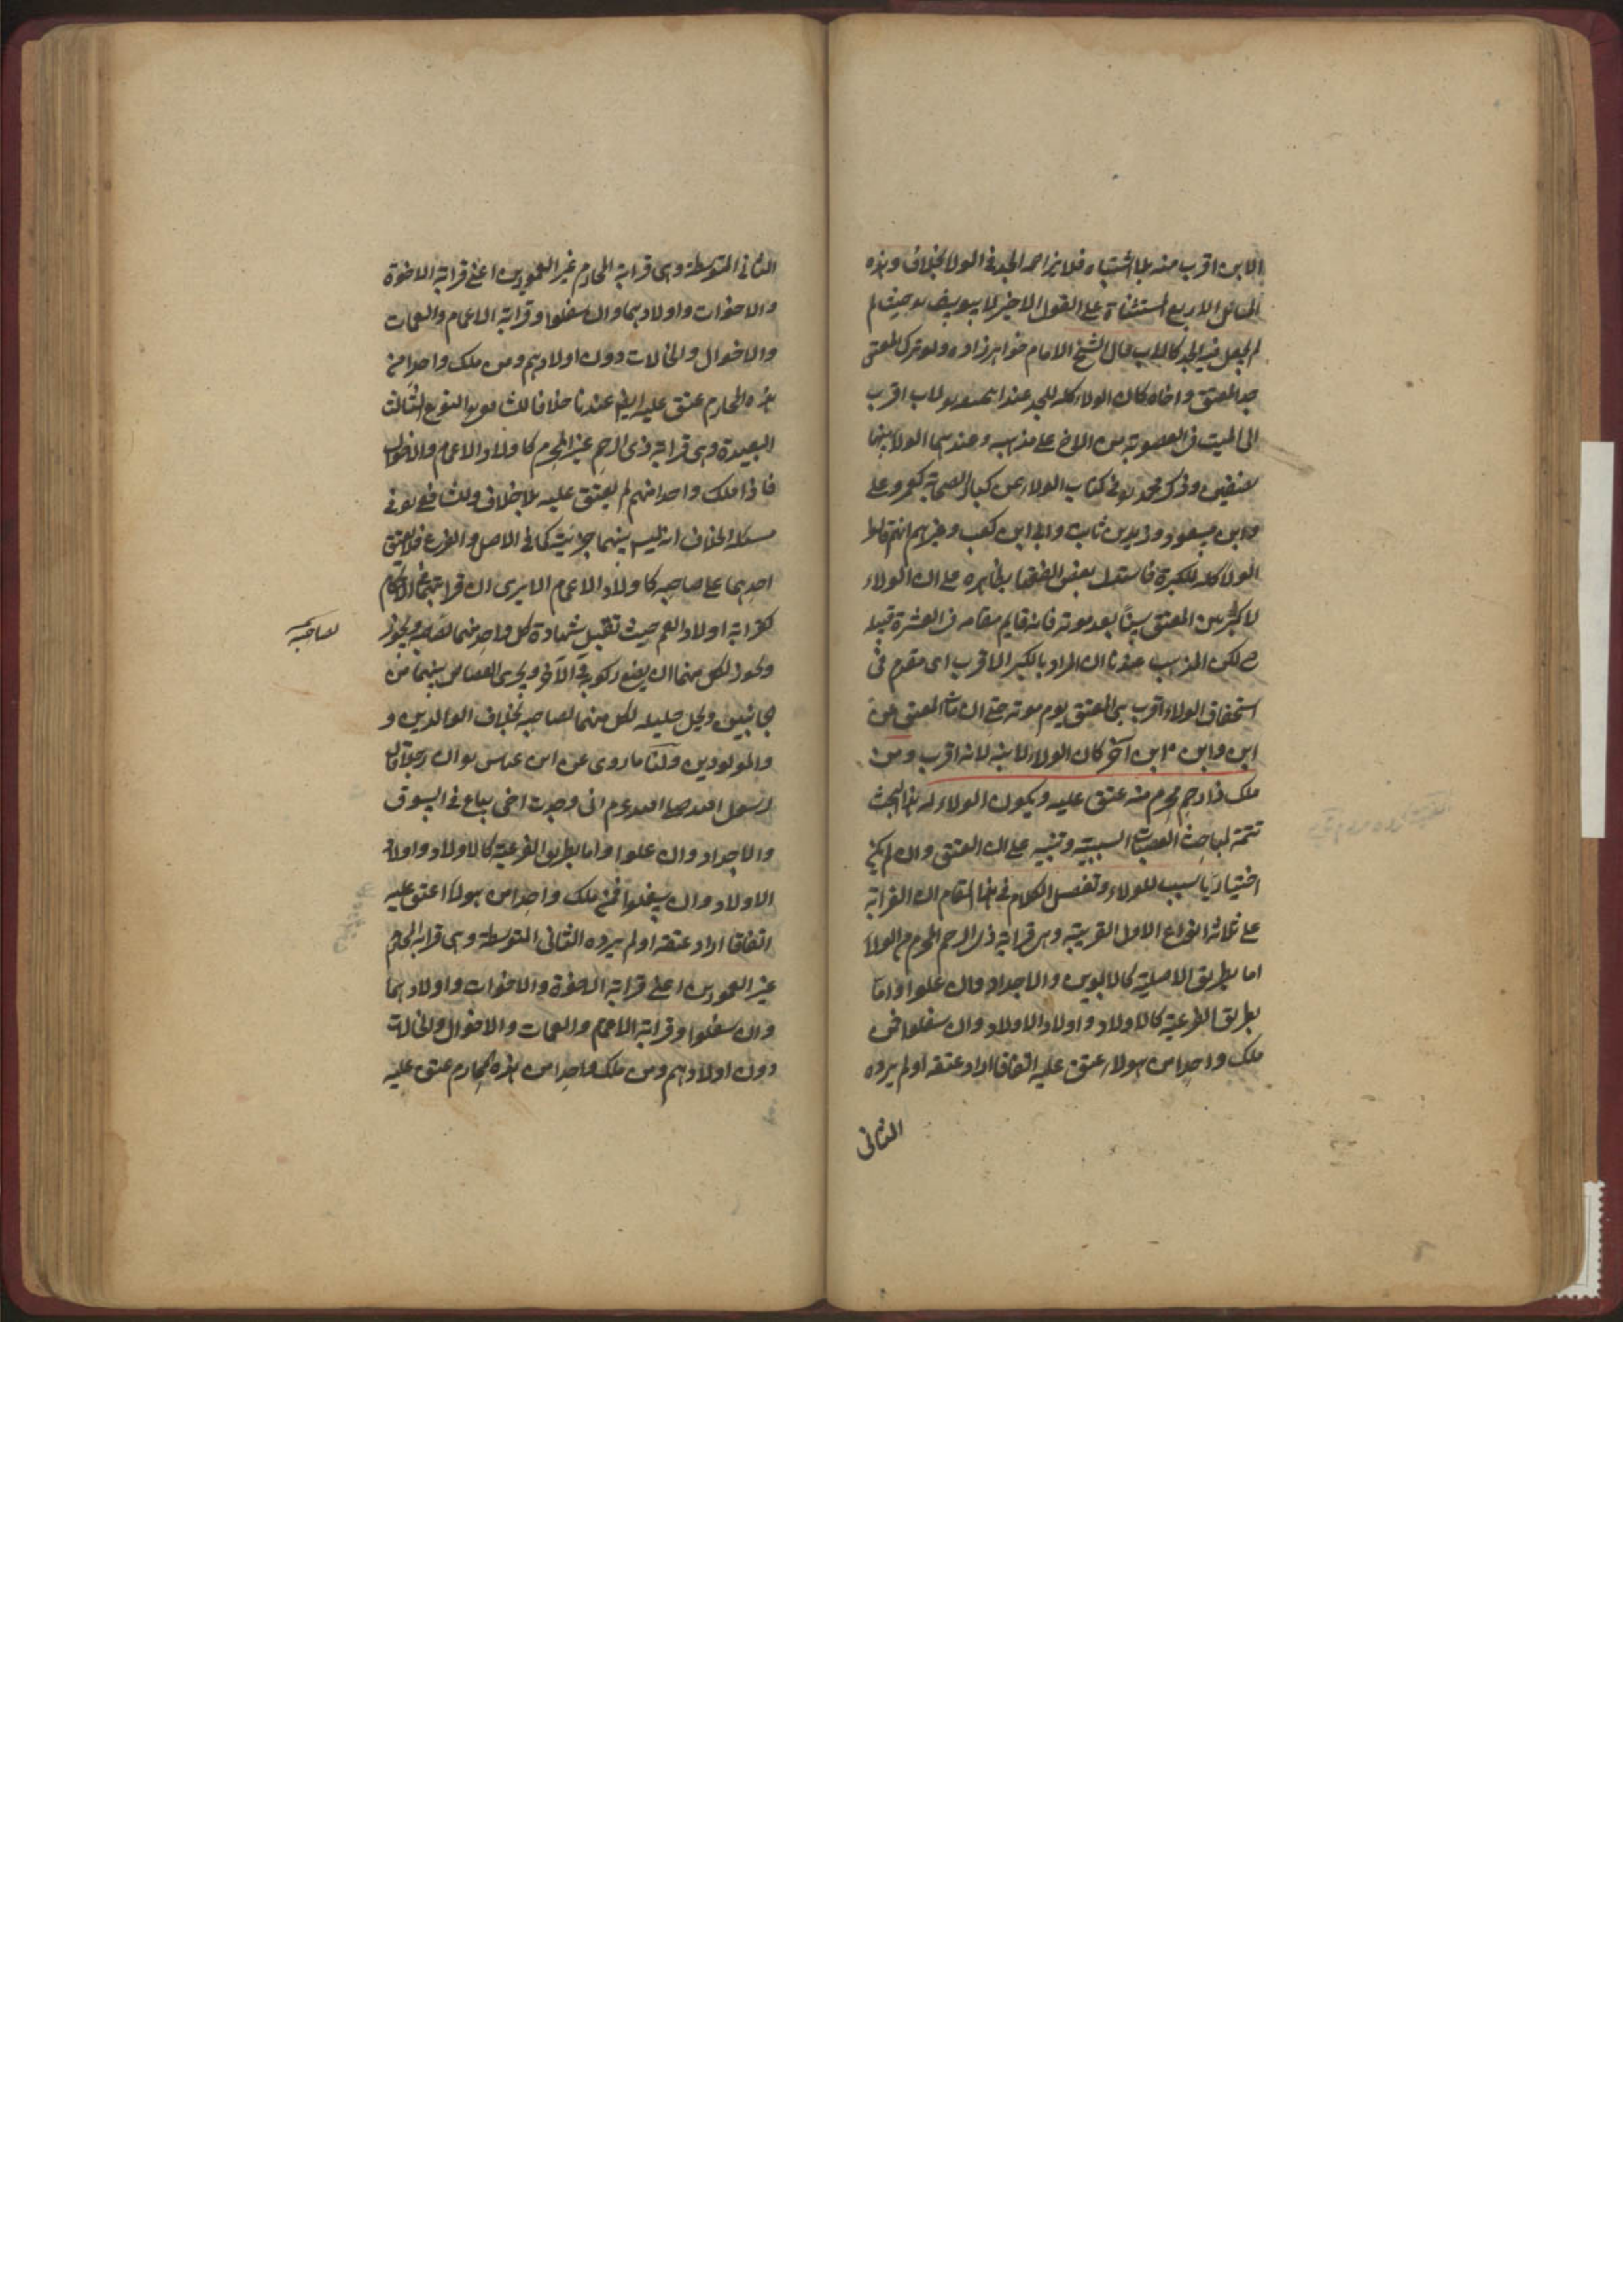 الابن اقرب منه بلا اشتباه فلا يزاحمه الجد في الولا بخلاف وهذه
المسائل الاربع المستثناة على القول الاخير لابي يوسف رح حيث لم
لم يجعل فيه الجد كالاب قال الشيخ الامام خواهرزاده ولو ترك المعتق
جد المعتق واخاه كان الولاء كله للجد عند
الى الميت في العصوبة من الاخ على مذهبه وعندهما الولا بينهما
نصفين وذكر محمد رح في كتاب الولاء عن كبار الصحابة كعمر وعلي
وابن مسعود وزيد بن ثابت وابي ابن كعب وغيرهم انهم قالوا
الولا كله للكبر فاستدل بعض الفقها بظاهره على ان الولاء
لاكبر من المعتق سنا بعد موته فانه قايم مقامه في العشرة قبله
لكن المذهب عندنا ان المراد بالكبر الاقرب اي مقدم في
استحقاق الولاء اقرب بني المعتق يوم موته حتى ان مات المعتق عن
ابن وابن ابن آخر كان الولاء لابنه لانه اقرب ومن
ملك ذا رحم محرم منه عتق عليه ويكون الولاء له هذا البحث
تتمة لمباحث العصبات السببية وتنبيه على ان العتق وان لم يكن
اختياريا سبب للولاء وتفصيل الكلام في هذا المقام ان القرابة
على ثلاثة انواع الاول القريبة وهي قرابة ذي الرحم المحرم من الولا
اما بطريق الاصلية كالابوين والاجداد وان علوا واما
بطريق الفرعية كالاولاد واولاد الاولاد وان سفلوا فمن
ملك واحدا من هولاء عتق عليه اتفاقا اراد عتقه او لم يرده
الثاني
الثاني المتوسطة وهي قرابة المحارم غير العمودين اعني قرابة الاخوة
والاخوات واولادهما وان سفلوا وقرابة الاعمام والعمات
والاخوال والخالات دون اولادهم ومن ملك واحدا من
هذه المحارم عتق عليه ايضا عندنا خلافا للشافعي رح النوع الثالث
البعيدة وهي قرابة ذي الرحم غير المحرم كاولاد الاعمام والاخوال
فاذا ملك واحدا منهم لم يعتق عليه بلا خلاف وللشافعي رح في
مسئلة الخلاف انه ليس بينهما جزئية كما في الاصل والفرع فلا يعتق
احدهما على صاحبه كاولاد الاعمام الا يرى ان قرابتهما في الاحكام
كقرابة اولاد العم حيث تقبل شهادة كل واحد منهما لصاحبه ويجوز
لصاحبه
ويجوز لكل منهما ان يضع زكوته في الآخر ويجري القصاص بينهما من
الجانبين ويحل حليلة لكل منهما لصاحبه بخلاف الوالدين و
والمولودين ولنا ما روى عن ابن عباس رض ان رجلا قال
لرسول الله صلى الله عليه وسلم اني وجدت اخي يباع في السوق
والاجداد وان علوا واما بطريق الفرعية كالاولاد واولاد
الاولاد وان سفلوا فمن ملك واحدا من هولاء عتق عليه
اتفاقا اراد عتقه او لم يرده الثاني المتوسطة وهي قرابة المحارم
غير العمودين اعني قرابة الاخوة والاخوات واولادهما
وان سفلوا وقرابة الاعمام والعمات والاخوال والخالات
دون اولادهم ومن ملك واحدا من هذه المحارم عتق عليه